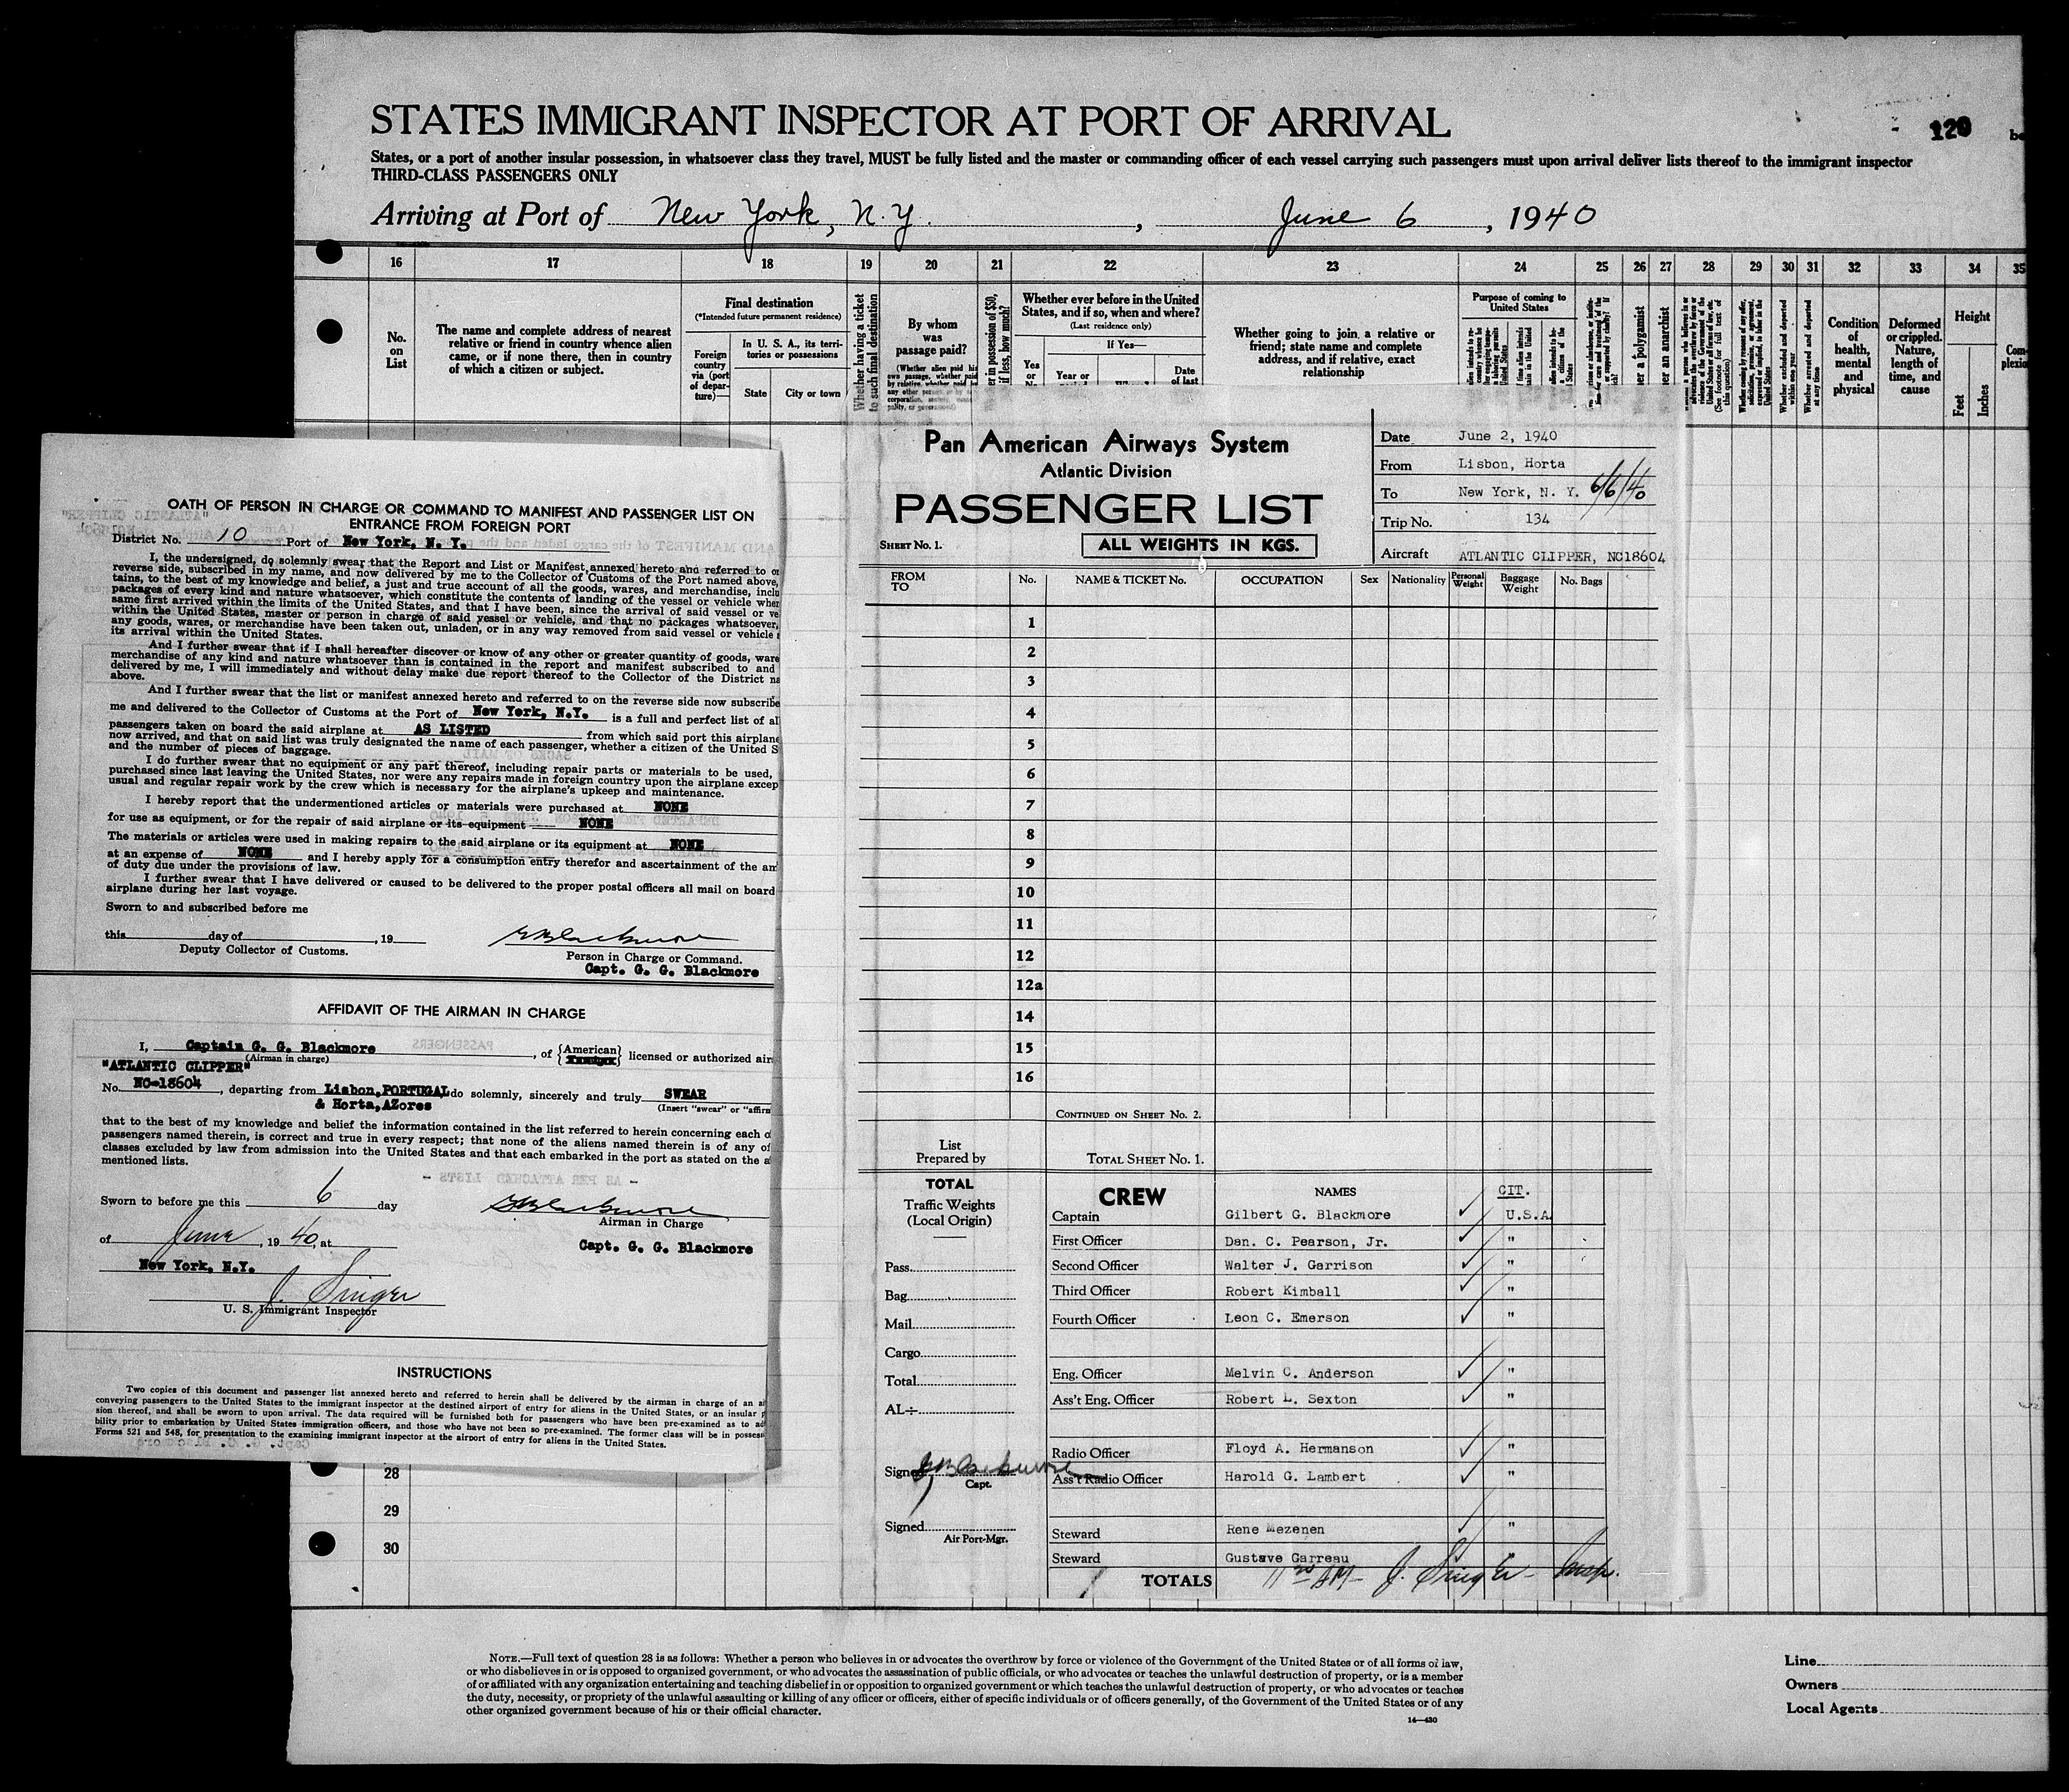 STATES IMMIGRANT INSPECTOR AT PORT OF ARRIVAL
120
States, or a port of another insular possession, in whatsoever class they travel, MUST be fully listed and the master or commanding officer of each vessel carrying such passengers must upon arrival deliver lists thereof to the immigrant inspector
THIRD-CLASS PASSENGERS ONLY
Arriving at Port of New York, N.Y. , June 6 , 1940
16 17 18 19 20 21 22 23 24 25 26 27 28 29 30 31 32 33 34 35
No. on List
The name and complete address of nearest relative or friend in country whence alien came, or if none there, then in country of which a citizen or subject.
Final destination
(*Intended future permanent residence)
Foreign country via (port of departure)—
In U. S. A., its territories or possessions
State
City or town
Whether having a ticket to such final destination
By whom was passage paid?
Whether ever before in the United States, and if so, when and where?
(Last residence only)
If Yes—
Yes or
Year or
Date of last
Whether going to join a relative or friend; state name and complete address, and if relative, exact relationship
Purpose of coming to United States
Condition of health, mental and physical
Deformed or crippled. Nature, length of time, and cause
Height
Feet
Inches
OATH OF PERSON IN CHARGE OR COMMAND TO MANIFEST AND PASSENGER LIST ON
ENTRANCE FROM FOREIGN PORT
District No. 10 Port of New York, N. Y.
I, the undersigned, do solemnly swear that the Report and List or Manifest annexed hereto and referred to or
reverse side, subscribed in my name, and now delivered by me to the Collector of Customs of the Port named above,
tains, to the best of my knowledge and belief, a just and true account of all the goods, wares, and merchandise, inclu
packages of every kind and nature whatsoever, which constitute the contents of landing of the vessel or vehicle wher
same first arrived within the limits of the United States, and that I have been, since the arrival of said vessel or ve
within the United States, master or person in charge of said vessel or vehicle, and that no packages whatsoever,
any goods, wares, or merchandise have been taken out, unladen, or in any way removed from said vessel or vehicle
its arrival within the United States.
And I further swear that if I shall hereafter discover or know of any other or greater quantity of goods, ware
merchandise of any kind and nature whatsoever than is contained in the report and manifest subscribed to and
delivered by me, I will immediately and without delay make due report thereof to the Collector of the District na
above.
And I further swear that the list or manifest annexed hereto and referred to on the reverse side now subscribe
me and delivered to the Collector of Customs at the Port of New York, N.Y. is a full and perfect list of al
passengers taken on board the said airplane at AS LISTED from which said port this airplane
now arrived, and that on said list was truly designated the name of each passenger, whether a citizen of the United S
and the number of pieces of baggage.
I do further swear that no equipment or any part thereof, including repair parts or materials to be used,
purchased since last leaving the United States, nor were any repairs made in foreign country upon the airplane excep
usual and regular repair work by the crew which is necessary for the airplane's upkeep and maintenance.
I hereby report that the undermentioned articles or materials were purchased at NONE
for use as equipment, or for the repair of said airplane or its equipment NONE
The materials or articles were used in making repairs to the said airplane or its equipment at NONE
at an expense of NONE and I hereby apply for a consumption entry therefor and ascertainment of the am
of duty due under the provisions of law.
I further swear that I have delivered or caused to be delivered to the proper postal officers all mail on board
airplane during her last voyage.
Sworn to and subscribed before me
this day of , 19
Deputy Collector of Customs.
GGBlackmore
Person in Charge or Command.
Capt. G. G. Blackmore
AFFIDAVIT OF THE AIRMAN IN CHARGE
I, Captain G. G. Blackmore , of {American} licensed or authorized air
(Airman in charge)
"ATLANTIC CLIPPER"
No. NC-18604 , departing from Lisbon, PORTUGAL do solemnly, sincerely and truly SWEAR
& Horta, AZores
(Insert "swear" or "affirm
that to the best of my knowledge and belief the information contained in the list referred to herein concerning each o
passengers named therein, is correct and true in every respect; that none of the aliens named therein is of any of
classes excluded by law from admission into the United States and that each embarked in the port as stated on the a
mentioned lists.
Sworn to before me this 6 day
GGBlackmore
Airman in Charge
of June , 19 40, at
Capt. G. G. Blackmore
New York, N.Y.
J. Singer
U. S. Immigrant Inspector
INSTRUCTIONS
Two copies of this document and passenger list annexed hereto and referred to herein shall be delivered by the airman in charge of an ai
conveying passengers to the United States to the immigrant inspector at the destined airport of entry for aliens in the United States, or an insular p
sion thereof, and shall be sworn to upon arrival. The data required will be furnished both for passengers who have been pre-examined as to ad
bility prior to embarkation by United States immigration officers, and those who have not been so pre-examined. The former class will be in possess
Forms 521 and 548, for presentation to the examining immigrant inspector at the airport of entry for aliens in the United States.
28
29
30
Pan American Airways System
Atlantic Division
PASSENGER LIST
SHEET No. 1.
ALL WEIGHTS IN KGS.
Date June 2, 1940
From Lisbon, Horta
To New York, N. Y. 6/6/40
Trip No. 134
Aircraft ATLANTIC CLIPPER, NC18604
FROM TO No. NAME & TICKET No. OCCUPATION Sex Nationality Personal Weight Baggage Weight No. Bags
1
2
3
4
5
6
7
8
9
10
11
12
12a
14
15
16
CONTINUED ON SHEET No. 2.
List Prepared by
TOTAL SHEET No. 1.
TOTAL
Traffic Weights
(Local Origin)
Pass.
Bag.
Mail
Cargo
Total
AL÷
Signed GGBlackmore
Capt.
Signed
Air Port-Mgr.
CREW NAMES CIT.
Captain Gilbert G. Blackmore ✓ U.S.A.
First Officer Dan. C. Pearson, Jr. ✓ "
Second Officer Walter J. Garrison ✓ "
Third Officer Robert Kimball ✓ "
Fourth Officer Leon C. Emerson ✓ "
Eng. Officer Melvin C. Anderson ✓ "
Ass't Eng. Officer Robert L. Sexton ✓ "
Radio Officer Floyd A. Hermanson ✓ "
Ass't Radio Officer Harold G. Lambert ✓ "
Steward Rene Mezenen ✓ "
Steward Gustave Garreau ✓ "
TOTALS
AM - J. Singer - Insp.
NOTE.—Full text of question 28 is as follows: Whether a person who believes in or advocates the overthrow by force or violence of the Government of the United States or of all forms of law,
or who disbelieves in or is opposed to organized government, or who advocates the assassination of public officials, or who advocates or teaches the unlawful destruction of property, or is a member
of or affiliated with any organization entertaining and teaching disbelief in or opposition to organized government or which teaches the unlawful destruction of property, or who advocates or teaches
the duty, necessity, or propriety of the unlawful assaulting or killing of any officer or officers, either of specific individuals or of officers generally, of the Government of the United States or of any
other organized government because of his or their official character.
14—430
Line
Owners
Local Agents